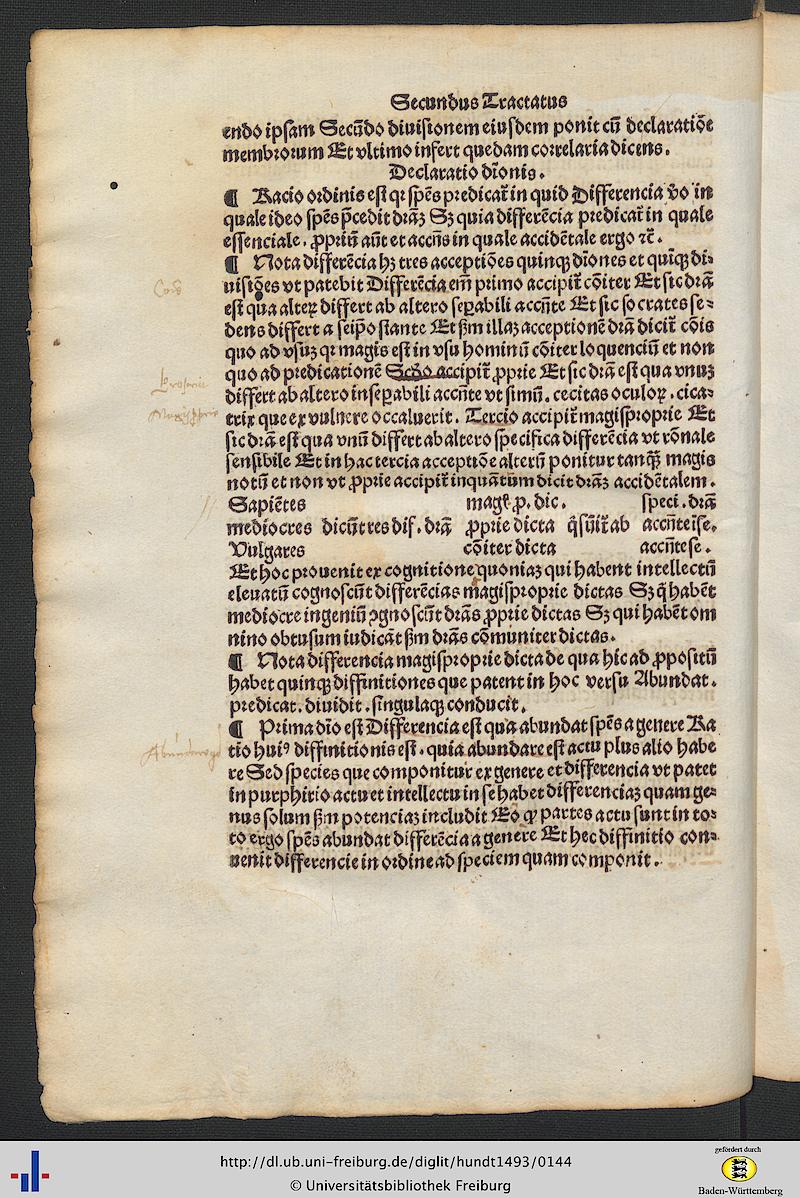 Secundus Tractatus
endo ipsam Secũdo diuisionem eiusdem ponit cũ declaratiõe
membrorum Et vltimo infert quedam correlaria dicens.
Declaratio dĩonis.
¶ Racio ordinis est qꝛ spẽs predicat̃ in quid Differencia ṽo in
quale ideo spẽs p̃cedit drãꝫ Sꝫ quia differẽcia predicat̃ in quale
essenciale. ꝓpriũ aũt et accñs in quale accidẽtale ergo ꝛc̃.
¶ Nota differẽcia hꝫ tres acceptiões quinqꝫ dĩones et quĩqꝫ di⸗
uisiões vt patebit Differẽcia em̃ primo accipit̃ cõiter Et sic drã
est qua alteꝝ differt ab altero seꝑabili accñte Et sic socrates se⸗
dens differt a seip̃o stante Et ẞm illaꝫ acceptionẽ drã dicit̃ cõis
quo ad vsuꝫ qꝛ magis est in vsu hominũ cõiter loquenciũ et non
quo ad predicationẽ Scďo accipit̃ ꝓprie Et sic drã est qua vnuꝫ
differt ab altero inseꝑabili accñte vt simũ. cecitas oculoꝝ. cica⸗
trix que ex vulnere occaluerit. Tercio accipit̃ magisproprie Et
sic drã est qua vnũ differt ab altero specifica differẽcia vt rõnale
sensibile Et in hac tercia acceptiõe alterũ ponitur tanq̃ꝫ magis
notũ et non vt ꝓprie accipit̃ inquãtum dicit drãꝫ accidẽtalem.
Sapiẽtes mag̃. ꝓ. dic. speci. drã
mediocres dicũt res dif. drã ꝓprie dicta q̃ sũit̃ ab accñte ĩse.
Vulgares cõiter dicta accñte se.
Et hoc prouenit ex cognitione quoniaꝫ qui habent intellectũ
eleuatũ cognoscũt differẽcias magisproprie dictas Sꝫ q̃ habẽt
mediocre ingeniũ ꝯgnoscũt drãs ꝓprie dictas Sꝫ qui habẽt om
nino obtusum iudicãt ẞm drãs cõmuniter dictas.
¶ Nota differencia magisproprie dicta de qua hic ad ꝓpositũ
habet quinqꝫ diffinitiones que patent in hoc versu Abundat.
predicat. diuidit. singulaqꝫ conducit.
¶ Prima dĩo est Differencia est qua abundat spẽs a genere Ra
tio huiꝰ diffinitionis est. quia abundare est actu plus alio habe
re Sed species que componitur ex genere et differencia vt patet
in purphirio actu et intellectu in se habet differenciaꝫ quam ge⸗
nus solum ẞm potenciaꝫ includit Eo ꝙ partes actu sunt in to⸗
to ergo spẽs abundat differẽcia a genere Et hec diffinitio con⸗
uenit differencie in ordine ad speciem quam componit.
http://dl.ub.uni-freiburg.de/diglit/hundt1493/0144
© Universitätsbibliothek Freiburg
gefördert durch
Baden-Württemberg